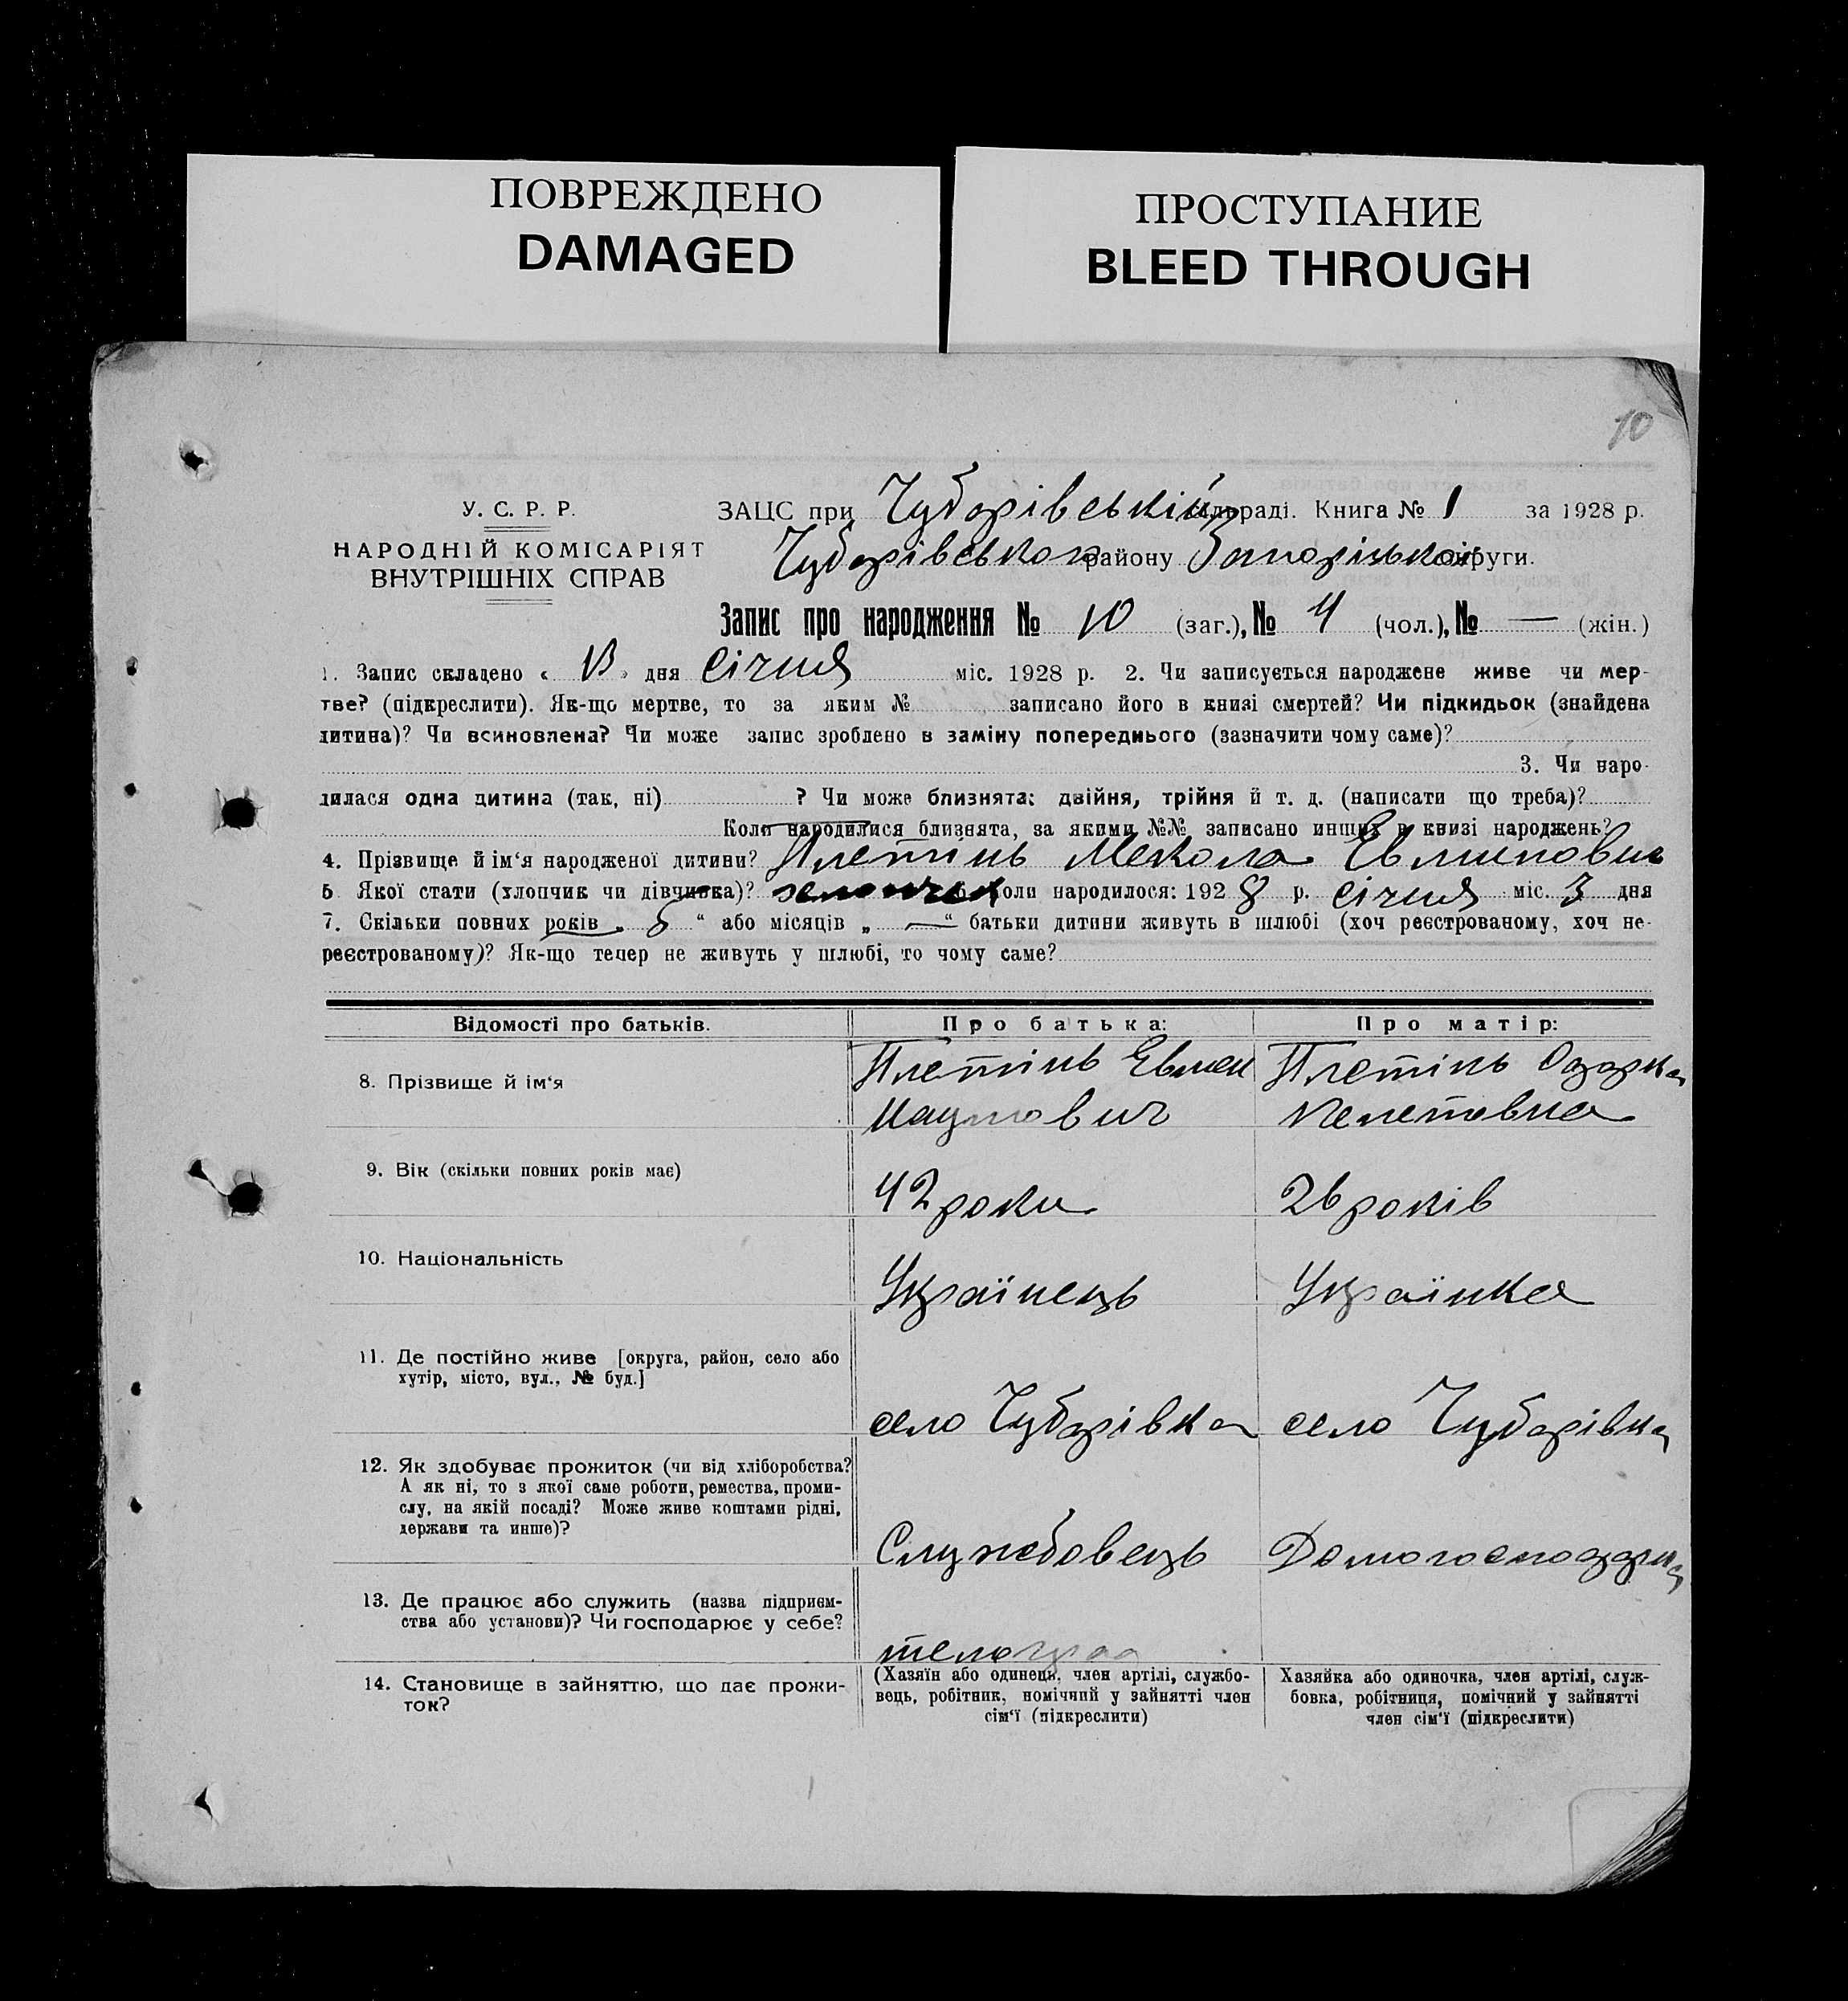 ПОВРЕЖДЕНО
DAMAGED
ПРОСТУПАНИЕ
BLEED THROUGH
10
У. С. Р. Р.
НАРОДНІЙ КОМІСАРІЯТ
ВНУТРІШНІХ СПРАВ
ЗАЦС при Чубарівській сільраді. Книга № 1 за 1928 р.
Чубарівського району Запорізької округи.
Запис про народження № 10 (заг.), № 4 (чол.), № — (жін.)
1. Запис складено « » дня січня міс. 1928 р. 2. Чи записується народжене живе чи мер-
тве? (підкреслити). Як-що мертве, то за яким № записано його в книзі смертей? Чи підкидьок (знайдена
дитина)? Чи всиновлена? Чи може запис зроблено в заміну попереднього (зазначити чому саме)?
3. Чи наро-
дилася одна дитина (так, ні) ? Чи може близнята: двійня, трійня й т. д. (написати що треба)?
Коли народилися близнята, за якими №№ записано инших в книзі народжень?
4. Прізвище й ім‘я народженої дитини? Плетінь Мекола Евминович
5 Якої стати (хлопчик чи дівчинка)? коли народилося: 1928 р. січня міс. 3 дня
7. Скільки повних років „ 6 “ або місяців „ — “ батьки дитини живуть в шлюбі (хоч реєстрованому, хоч не-
реєстрованому)? Як-що тепер не живуть у шлюбі, то чому саме?
Відомості про батьків.
Про батька:
Про матір:
8. Прізвище й ім‘я
Плетінь Евмен
Наумович
Плетінь Одарка
9. Вік (скільки повних років має)
42 роки
26 років
10. Національність
Українець
Українка
11. Де постійно живе [округа, район, село або
хутір, місто, вул., № буд.]
село Чубарівка
село Чубарівка
12. Як здобуває прожиток (чи від хліборобства?
А як ні, то з якої саме роботи, ремества, проми-
слу, на якій посаді? Може живе коштами рідні,
держави та инше)?
Службовець
Домогосподарка
13. Де працює або служить (назва підприєм-
ства або установи)? Чи господарює у себе?
14. Становище в зайняттю, що дає прожи-
ток?
(Хазяїн або одинець, член артілі, службо-
вець, робітник, помічний у зайнятті член
сім‘ї (підкреслити)
Хазяйка або одиночка, член артілі, служ-
бовка, робітниця, помічний у зайнятті
член сім‘ї (підкреслити)